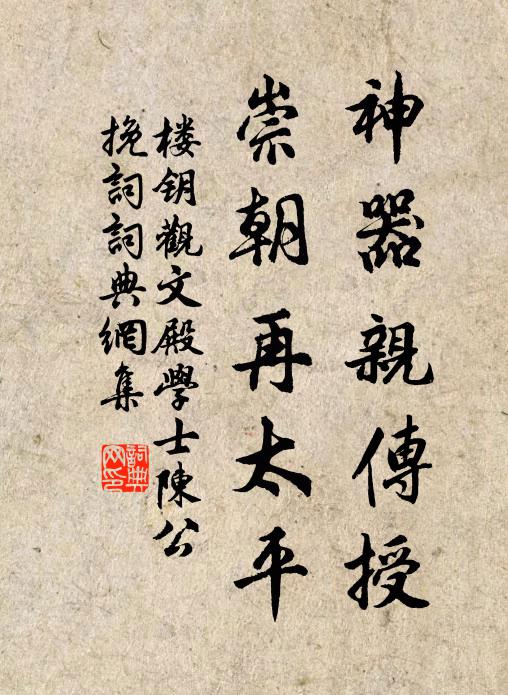 神器親傳授
崇朝再太平
楼钥觀文殿學士陳公
挽詞詞典網集
詞典
网印